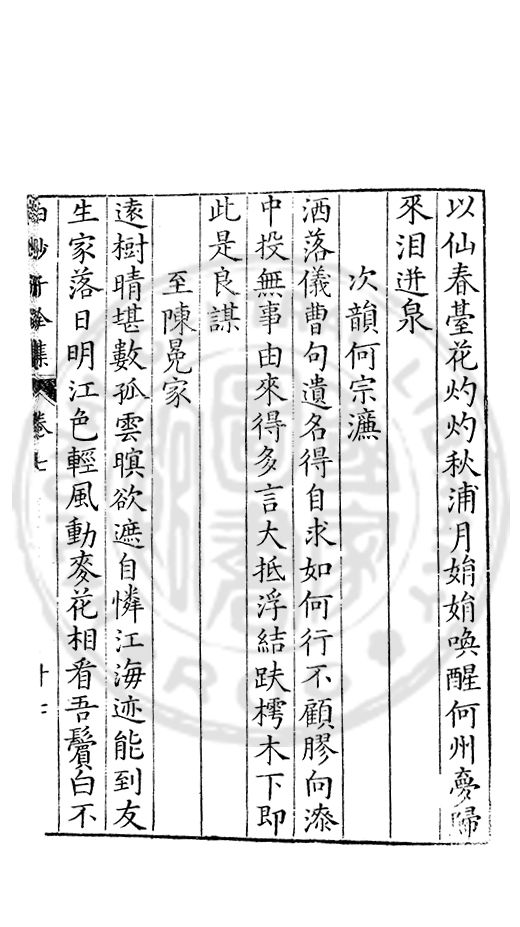 以仙春臺花灼灼秋浦月娟娟喚醒何州夣歸
來泪迸泉
次韻何宗濂
洒落儀曹句遺名得自求如何行不顧膠向漆
中投無事由來得多言大抵浮結趺樗木下即
此是良謀
至陳冕家
遠樹晴堪數孤雲暝欲遮自憐江海迹能到友
生家落日明江色輕風動麥花相看吾鬢白不
白沙子全集 卷七 十二